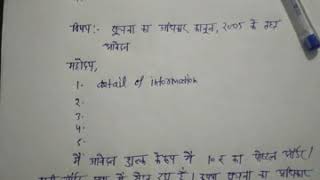 विषय:- सूचना का अधिकार कानून, 2005 के तहत
आवेदन
महोदय,
1- detail of information
2-
3-
4-
5-
मैं आवेदन शुल्क के रूप में 10 रु का पोस्टल ऑर्डर।
रहा हूँ। कृपया सूचना का अधिकार